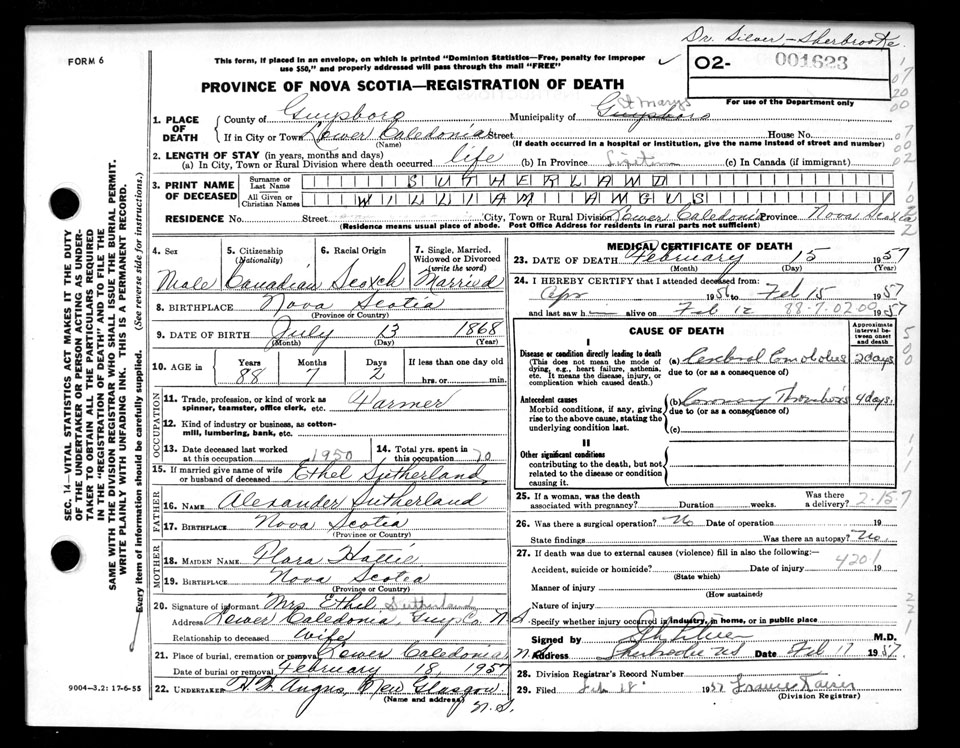 Dr. Silver, Sherbrooke.
FORM 6
This form, if placed in an envelope, on which is printed "Dominion Statistics—Free, penalty for improper use $50," and properly addressed will pass through the mail "FREE"
✓
02- 001623
For use of the Department only
PROVINCE OF NOVA SCOTIA—REGISTRATION OF DEATH
1. PLACE OF DEATH
County of Guysboro Municipality of Guysboro St Marys
If in City or Town Lower Caledonia Street House No.
(Name) (If death occurred in a hospital or institution, give the name instead of street and number)
2. LENGTH OF STAY (in years, months and days)
(a) In City, Town or Rural Division where death occurred life (b) In Province (c) In Canada (if immigrant)
3. PRINT NAME OF DECEASED
Surname or Last Name SUTHERLAND
All Given or Christian Names WILLIAM ANGUS
RESIDENCE No. Street City, Town or Rural Division Lower Caledonia Province Nova Scotia
(Residence means usual place of abode. Post Office Address for residents in rural parts not sufficient)
4. Sex Male
5. Citizenship (Nationality) Canadian
6. Racial Origin Scotch
7. Single, Married, Widowed or Divorced (write the word) Married
8. BIRTHPLACE Nova Scotia
(Province or Country)
9. DATE OF BIRTH July 13 1868
(Month) (Day) (Year)
10. AGE in Years Months Days If less than one day old
88 7 2 hrs. or min.
OCCUPATION
11. Trade, profession, or kind of work as spinner, teamster, office clerk, etc. Farmer
12. Kind of industry or business, as cotton-mill, lumbering, bank, etc.
13. Date deceased last worked at this occupation 1950
14. Total yrs. spent in this occupation 70
15. If married give name of wife or husband of deceased Ethel Sutherland
FATHER
16. NAME Alexander Sutherland
17. BIRTHPLACE Nova Scotia
(Province or Country)
MOTHER
18. MAIDEN NAME Flora
19. BIRTHPLACE Nova Scotia
(Province or Country)
20. Signature of informant Mrs Ethel Sutherland
Address Lower Caledonia, Guy. Co. N.S.
Relationship to deceased Wife
21. Place of burial, cremation or removal Lower Caledonia N.S.
Date of burial or removal February 18, 1957
22. UNDERTAKER Angus, New Glasgow. N.S.
(Name and address)
9004—3.2: 17-6-55
MEDICAL CERTIFICATE OF DEATH
23. DATE OF DEATH February 15 1957
(Month) (Day) (Year)
24. I HEREBY CERTIFY that I attended deceased from:
Apr 1956 to Feb 15 1957
and last saw h alive on Feb 12 1957
88-7-02-09
CAUSE OF DEATH
Approximate interval between onset and death
I
Disease or condition directly leading to death
(This does not mean the mode of dying, e.g., heart failure, asthenia, etc. It means the disease, injury, or complication which caused death.)
(a) Cerebral Embolus 2 days
due to (or as a consequence of)
Antecedent causes
Morbid conditions, if any, giving rise to the above cause, stating the underlying condition last.
(b) Coronary Thrombosis 4 days
due to (or as a consequence of)
(c)
II
Other significant conditions
contributing to the death, but not related to the disease or condition causing it.
25. If a woman, was the death associated with pregnancy? Was there a delivery?
2-15-7
26. Was there a surgical operation? No Date of operation 19
State findings Was there an autopsy? No
27. If death was due to external causes (violence) fill in also the following:—
Accident, suicide or homicide? Date of injury 19
(State which)
4201
Manner of injury
(How sustained)
Nature of injury
Specify whether injury occurred in industry, in home, or in public place
Signed by M.D.
Address Sherbrooke NS Date Feb 17 1957
28. Division Registrar's Record Number
29. Filed Feb 18 1957
Division Registrar
SEC. 14—VITAL STATISTICS ACT MAKES IT THE DUTY OF THE UNDERTAKER OR PERSON ACTING AS UNDERTAKER TO OBTAIN ALL THE PARTICULARS REQUIRED IN THE "REGISTRATION OF DEATH" AND TO FILE THE SAME WITH THE DIVISION REGISTRAR WHO SHALL ISSUE THE BURIAL PERMIT.
WRITE PLAINLY WITH UNFADING INK. THIS IS A PERMANENT RECORD.
Every item of information should be carefully supplied. (See reverse side for instructions.)